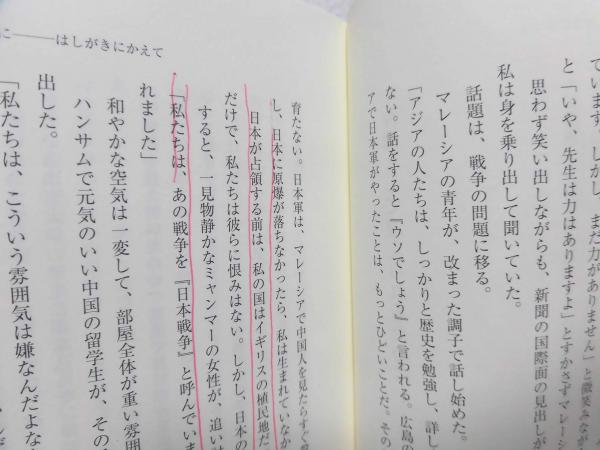 に――はしがきにかえて
ています。しかし、まだ力がありません」と微笑みなが
と「いや、先生は力はありますよ」とすかさずマレーシ
思わず笑い出しながらも、新聞の国際面の見出しが
私は身を乗り出して聞いていた。
話題は、戦争の問題に移る。
マレーシアの青年が、改まった調子で話し始めた。
「アジアの人たちは、しっかりと歴史を勉強し、詳し
ない。話をすると『ウソでしょう』と言われる。広島の
アで日本軍がやったことは、もっとひどいことだ。その
育たない。日本軍は、マレーシアで中国人を見たらすぐ
し、日本に原爆が落ちなかったら、私は生まれていなか
日本が占領する前は、私の国はイギリスの植民地だ
だけで、私たちは彼らに恨みはない。しかし、日本の
すると、一見物静かなミャンマーの女性が、追い
「私たちは、あの戦争を『日本戦争』と呼んでいま
れました」
和やかな空気は一変して、部屋全体が重い雰囲
ハンサムで元気のいい中国の留学生が、その
出した。
「私たちは、こういう雰囲気は嫌なんだよな